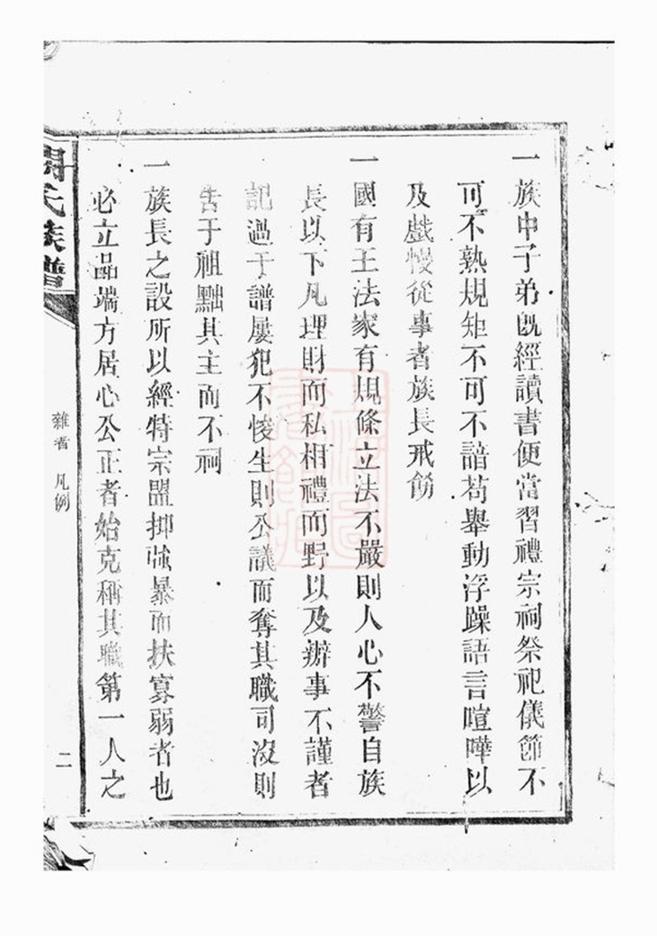 一族中子弟旣經讀書便當習禮宗祠祭祀儀節不
可不熟規矩不可不諳苟舉動浮躁語言喧嘩以
及戲慢從事者族長戒飭
一國有王法家有規條立法不嚴則人心不警自族
長以下凡理財而私相禮而野以及辦事不謹者
記過于譜屢犯不悛生則公議而奪其職司沒則
告于祖黜其主而不祠
一族長之設所以經持宗盟抑強暴而扶寡弱者也
必立品端方居心公正者始克稱其職第一人之
氏族譜
雜著 凡例
二